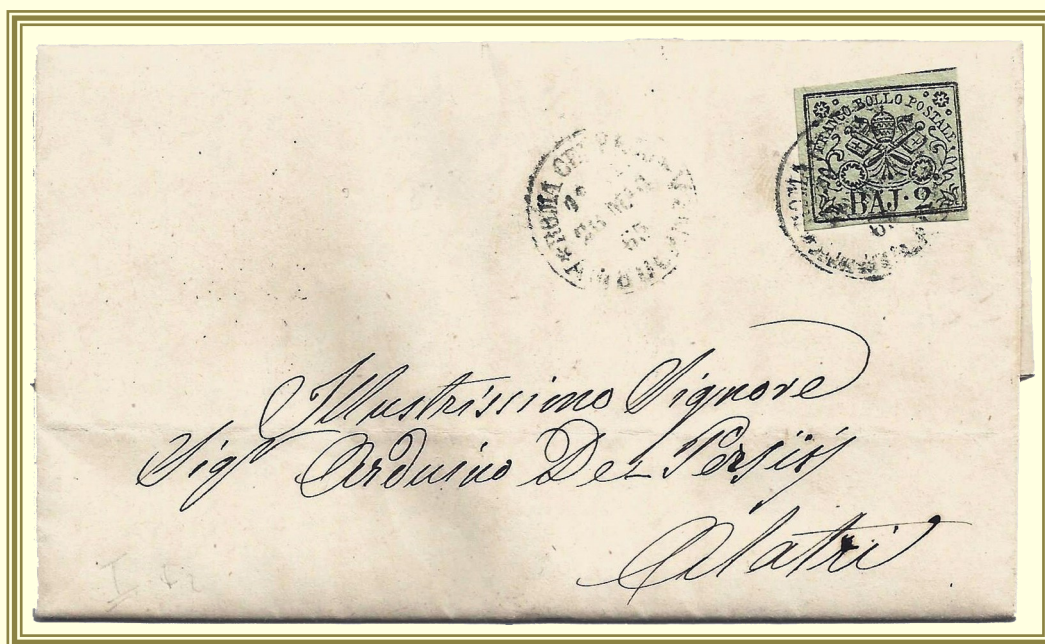 FRANCO BOLLO POSTALE
BAJ · 2
ROMA
65
Illustrissimo Signore
Sigr Arduino De Persiis
Alatri